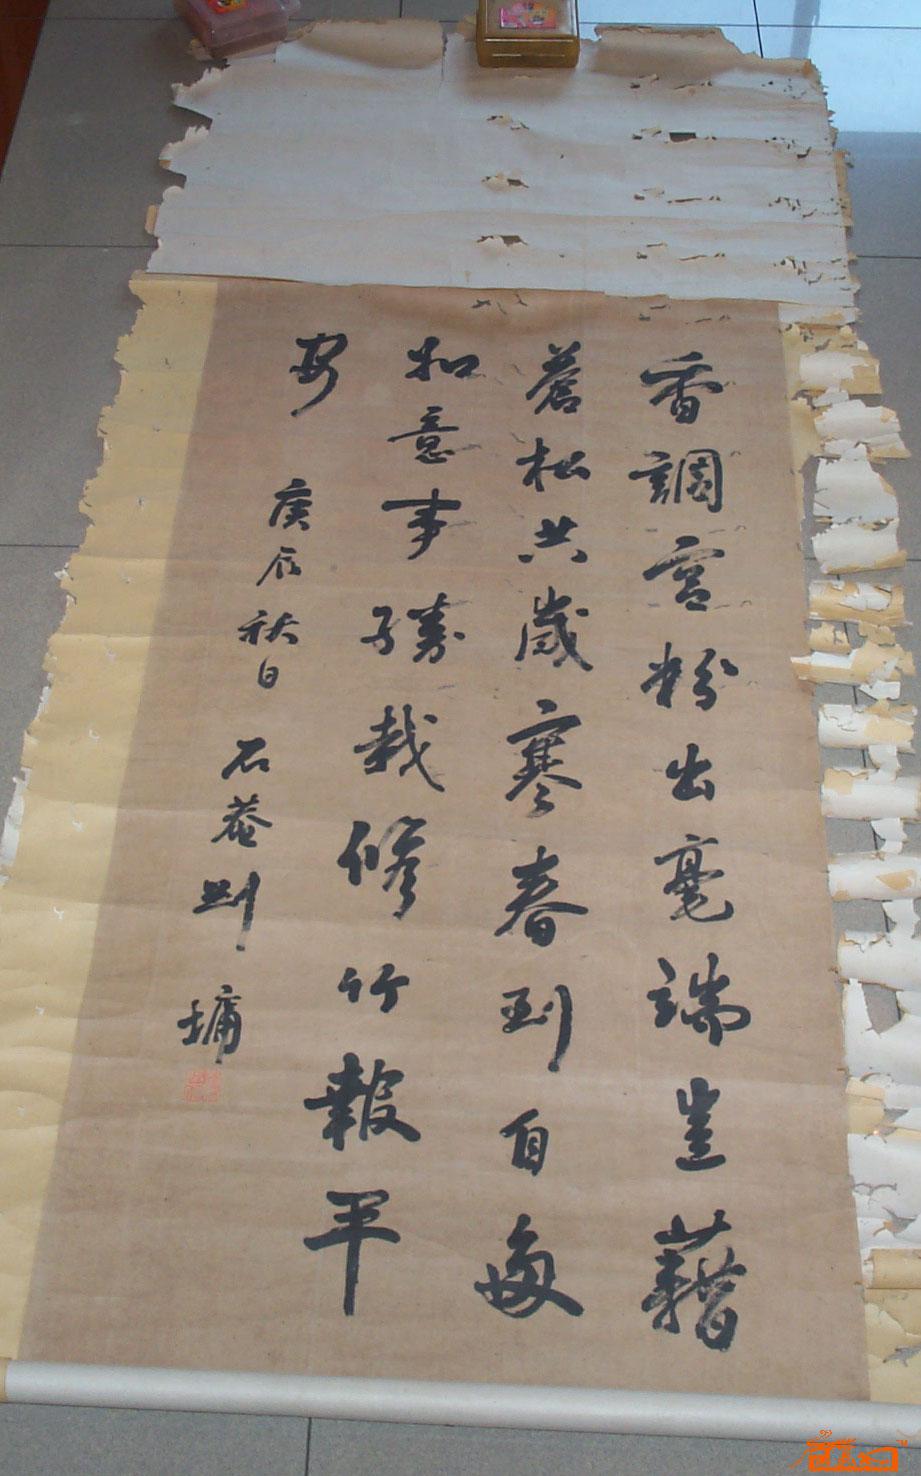 香調宫粉出毫端豈藉
蒼松共歲寒春到自每
和意事勝栽修竹報平
安
庚辰秋日
石菴劉墉